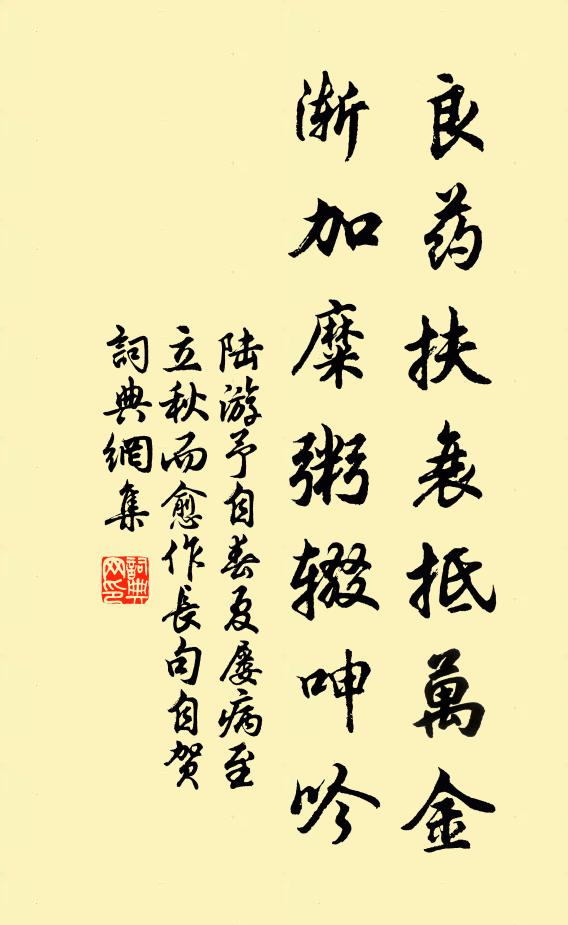 良药扶衰抵萬金
渐加糜粥辍呻吟
陆游予自春夏屡病至
立秋而愈作长句自贺
詞典網集
詞典
网印